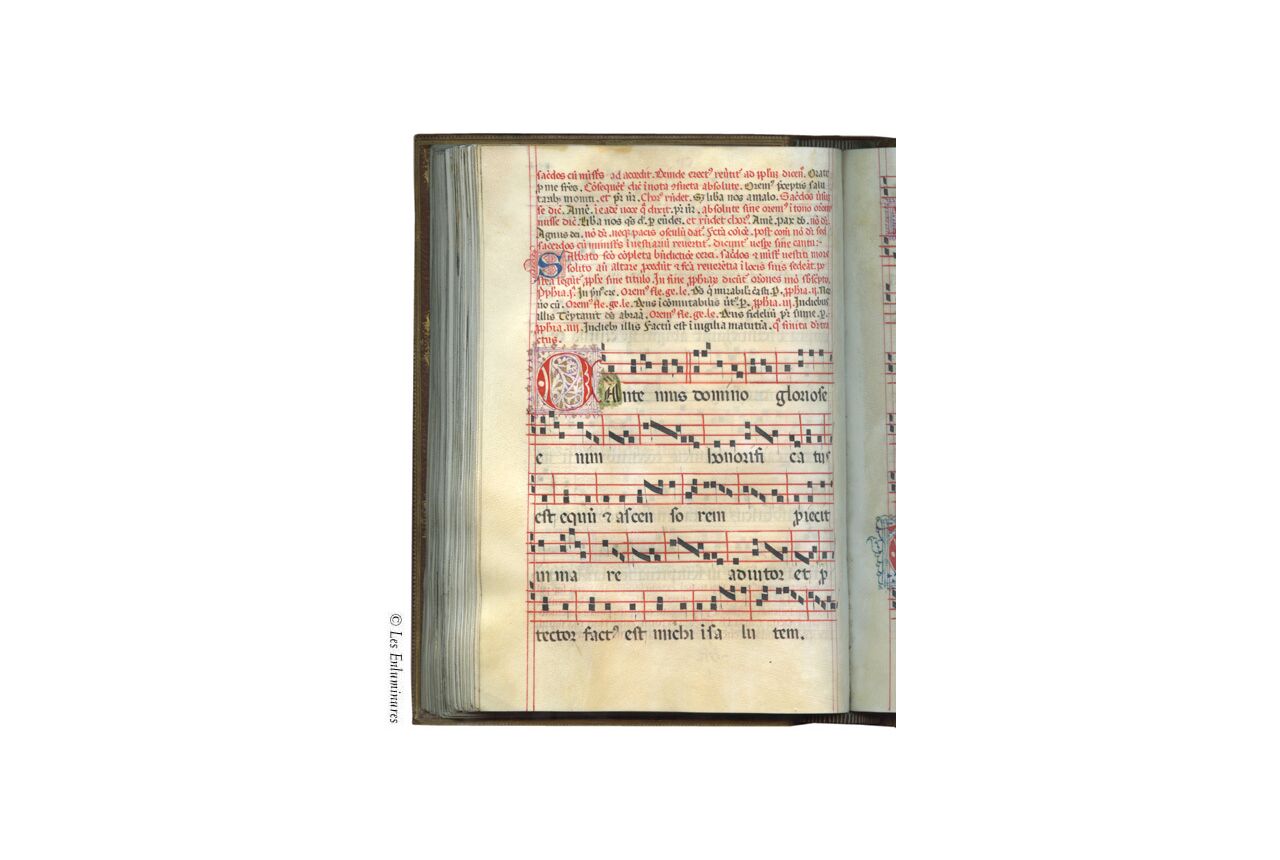 sac̄dos cū mīst̄s ad accedit. Deinde erect⁹ reūtit̄ ad ppl̄m dicen̄. Orate
p me fr̄es. Cōsequēt̄ dic̄ ī nota 9sueta absolute. Orem⁹ p̄ceptis salu
taribȝ moniti. et pr̄ nr̄. Chor⁹ rn̄det. S; liba nos amalo. Sac̄dos
se dic̄. Amē. ī eadē uoce q̄ dixit. pr̄ nr̄. absolute sine orem⁹ ī tono
misse dic̄. Liba nos qs d. p eundē. et rn̄det chor⁹. Amē. pax dō. nō dr̄.
Agnus dei. nō dr̄. neqȝ pacis osculū dat̄. Fc̄tā cōīoē. post com̄ nō dr̄
sacerdos cū ministris ī uestiariū reuertit̄. dicunt̄ uespe sine cantu:-
Sabbato sc̄o cōpleta bn̄dictiōe cerei. sac̄dos & mīst̄ uestiti more
solito an̄ altare p̄cedūt & fc̄ā reuerētia ī locis suis sedeāt. po
stea legūt̄ pphīe sine titulo. In fine pphīaȝ dicūt̄ orōnes mō
Pphīa. Jn pn̄ cre. Orem⁹ fle. ge. le. Ds q̄ mirabilȝ creasti. p. pphīa. ii.
no cū. Orem⁹ fle. ge. le. Deus īcōmutabilis ūt⁹. p. pphīa. iii. Indiebus
illis Tēptauit ds abraā. Orem⁹ fle. ge. le. Deus fideliū pr̄ sume. p.
pphīa. iiii. Indiebȝ illis Factū est ī uigilia matutīa. q̄ finita dr̄ tra
ctus.
CAnte mus domino gloriose
e nim honorifi ca tus
est equū & ascen so rem piecit
in ma re adiutor et p
tector fact⁹ est michi isa lu tem.
© Les Enluminures